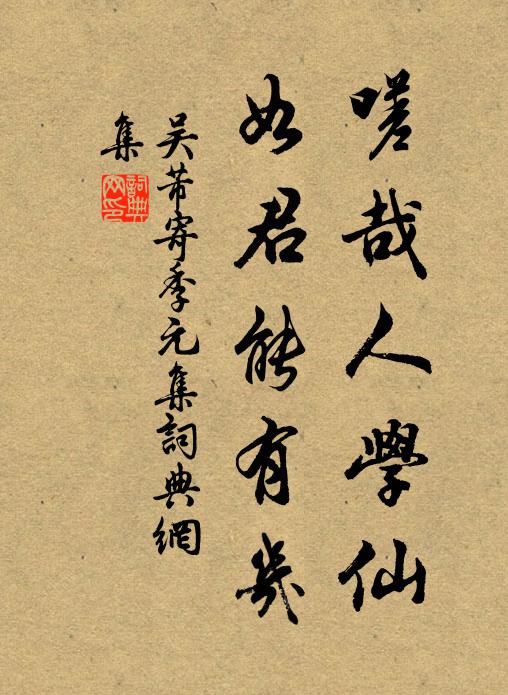 嗟哉人學仙
如君能有幾
吴芾寄季元集詞典網
集
詞典
网印